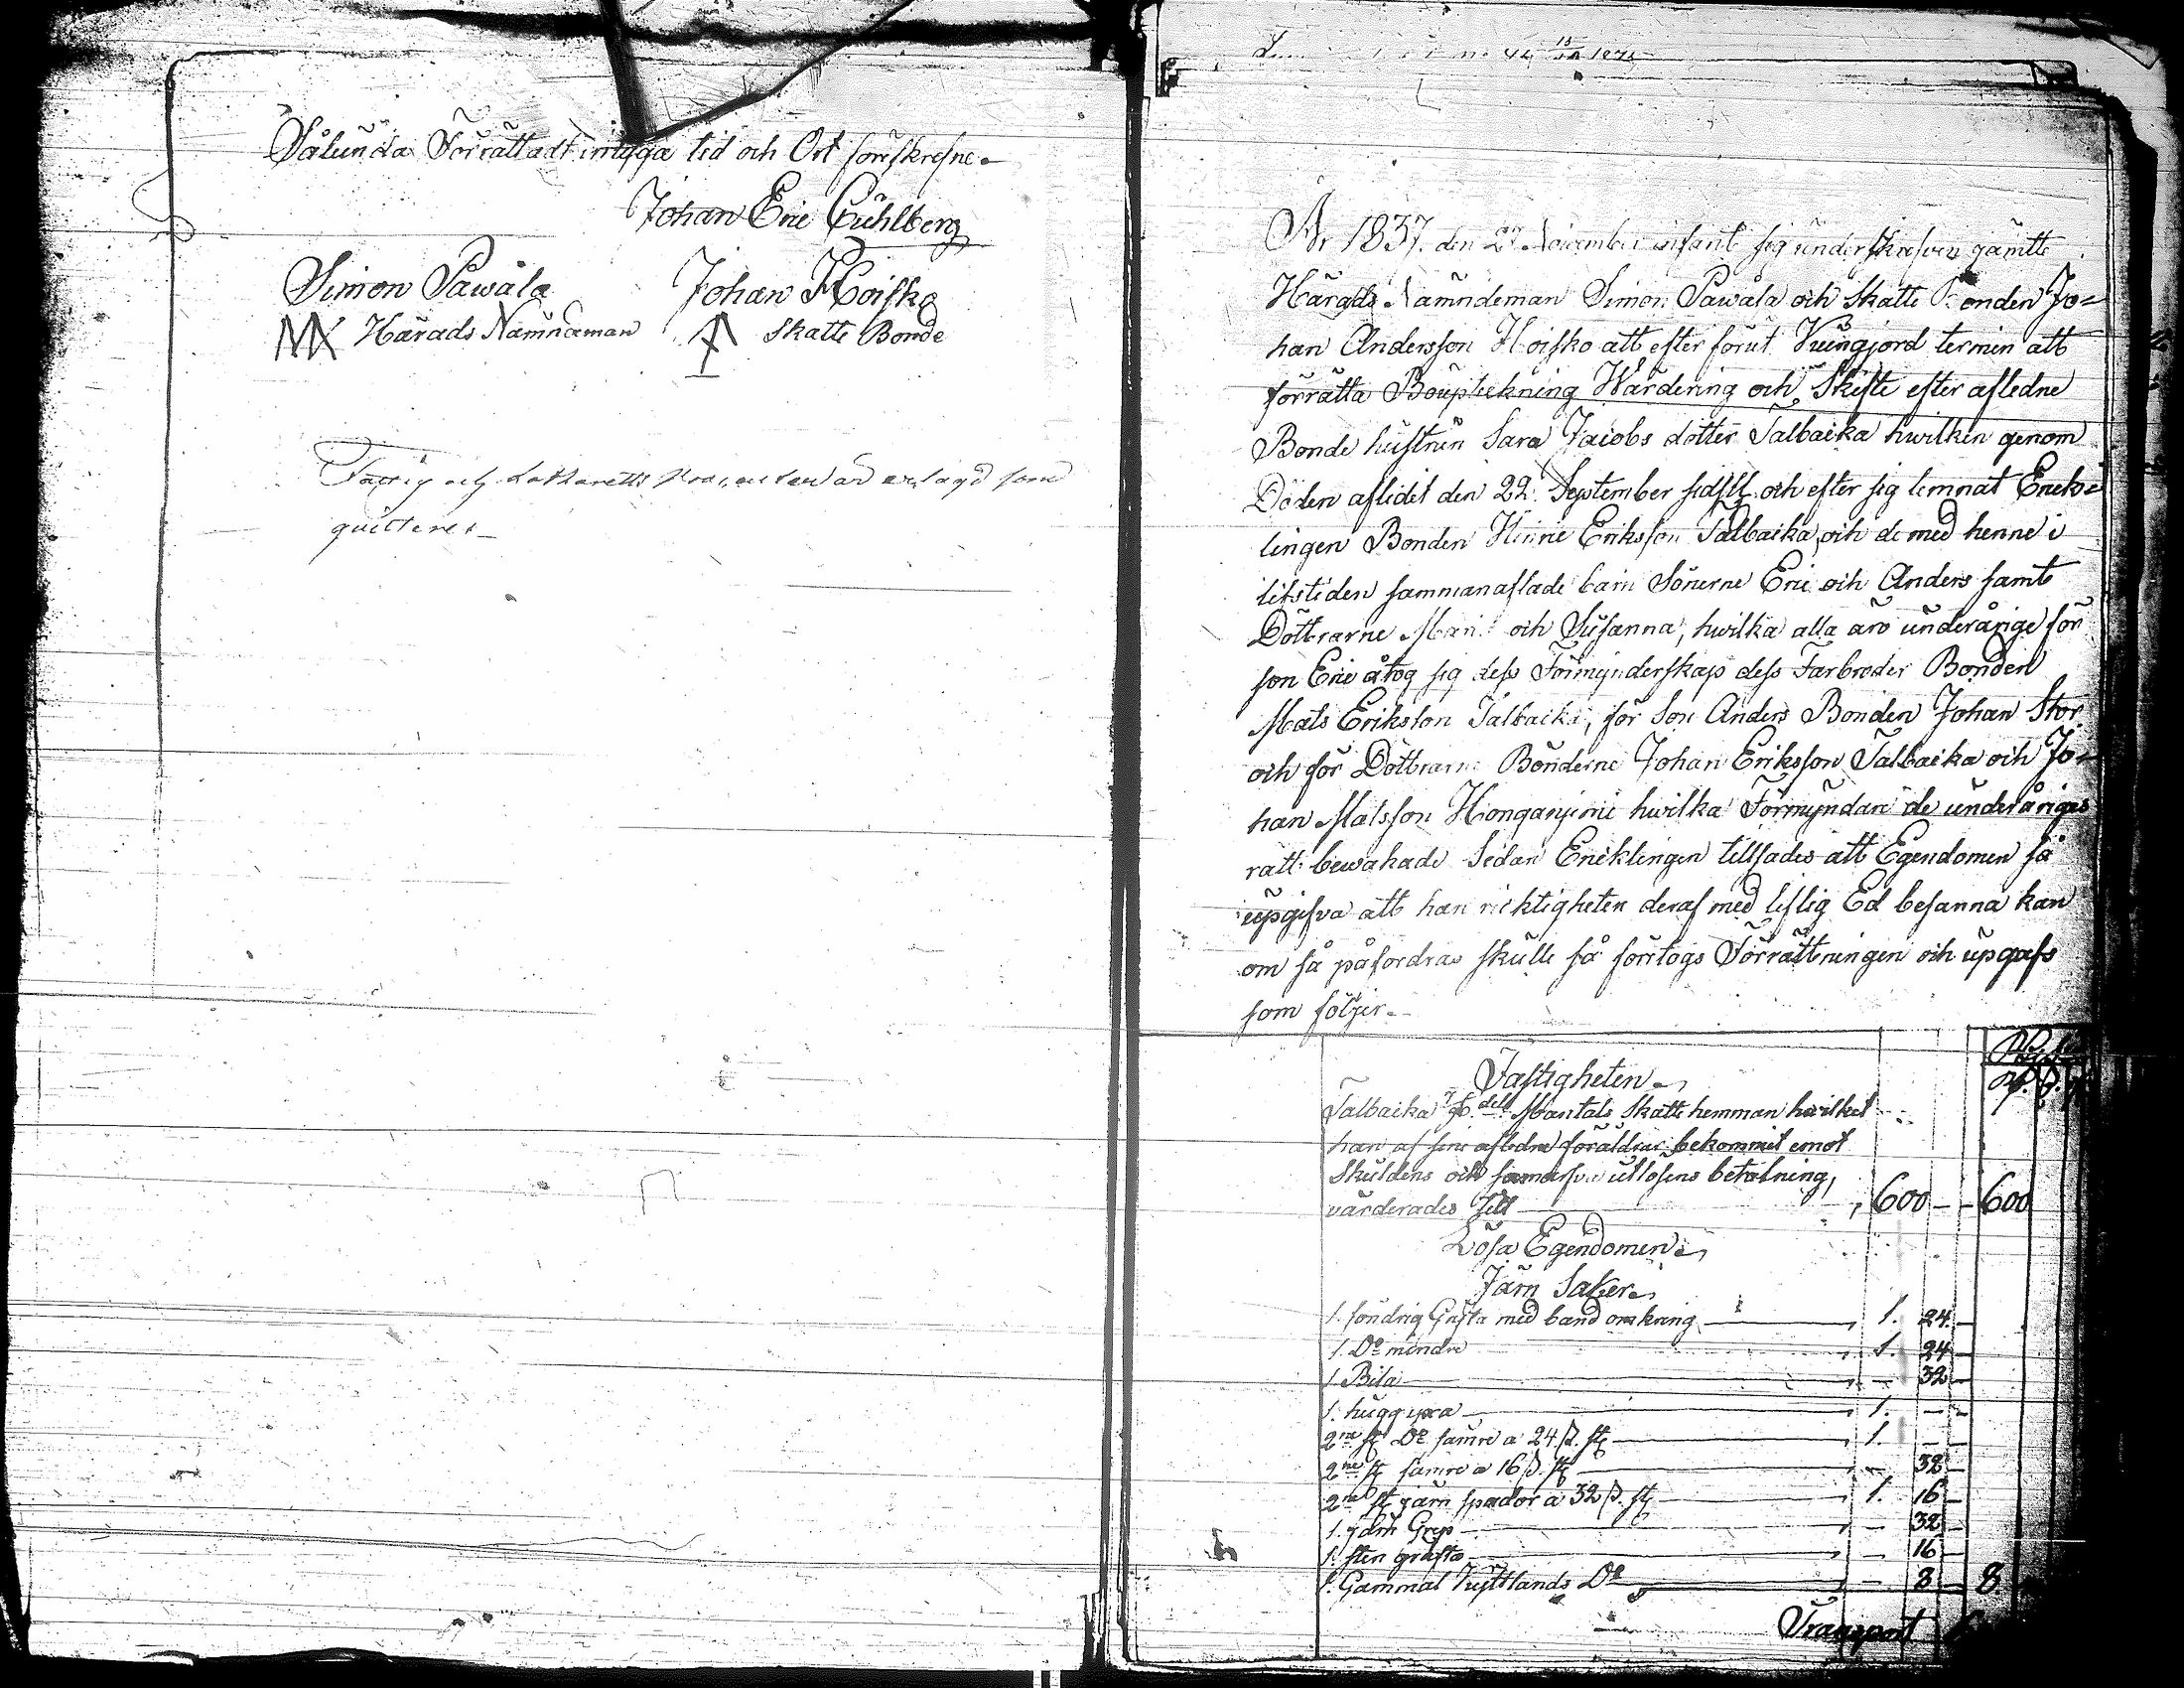 Sålunda Förrättadt intyga tid och Ort förskrefne.
Johan Eric Cuhlberg
Simon Pawåla Johan Hoisko
Härads Nämndeman Skatte Bonde
är erlagd som
quitteres
1875
År 1837. den 27 November infant sig underskrefven jämtte
Härads Nämndeman Simon Pawåla och Skatte Bonden Jo=
han Andersson Hoisko att efter förut kungjord termin att
förrätta Bouptekning Wärdering och Skifte efter afledne
Bonde hustrun Sara Jacobs dotter Talbacka hwilken genom
Döden aflidit den 22. September sidstl. och efter sig lemnat Enck=
lingen Bonden Henric Eriksson Talbacka, och de med henne i
lifstiden sammanaflade barn Sönerne Eric och Anders samt
Döttrarne Maria och Susanna, hwilka alla äro underårige för
son Eric åtog sig dess Förmynderskap dess Farbroder Bonden
Mats Eriksson Talbacka, för Son Anders Bonden Johan Stor
och för Döttrarne Bönderne Johan Eriksson Talbacka och Jo=
han Matsson hwilka Förmyndare de underåriges
rätt bewakade Sedan Encklingen tillsades att Egendomen så
upgifva att han ricktigheten deraf med liflig Ed besanna kan
om så påfordras skulle så förrtogs Förrättningen och upgafs
som följer.
Fastigheten
Talbacka dels Mantals Skatte hemman hwilket
han af sine afledne föräldrar bekommit emot
Skuldens och utlösens betalning,
värderades till 600 – – 600
Lösa Egendomen
Järn Saker
1. söndrig Gryta med band omkring 1. 24 –
1. Do mindre 1. 24 –
1. Bila – 32 –
1. huggyxa 1. – –
2ne st Do sämre a 24 ß. st 1. – –
2ne st sämre a 16 ß. st – 32 –
2ne st järn spador a 32 ß. st 1. 16 –
1. järn Grep – 32 –
1. sten gräfta – 16 –
1. Gammal Do – 8 – 8
Transport